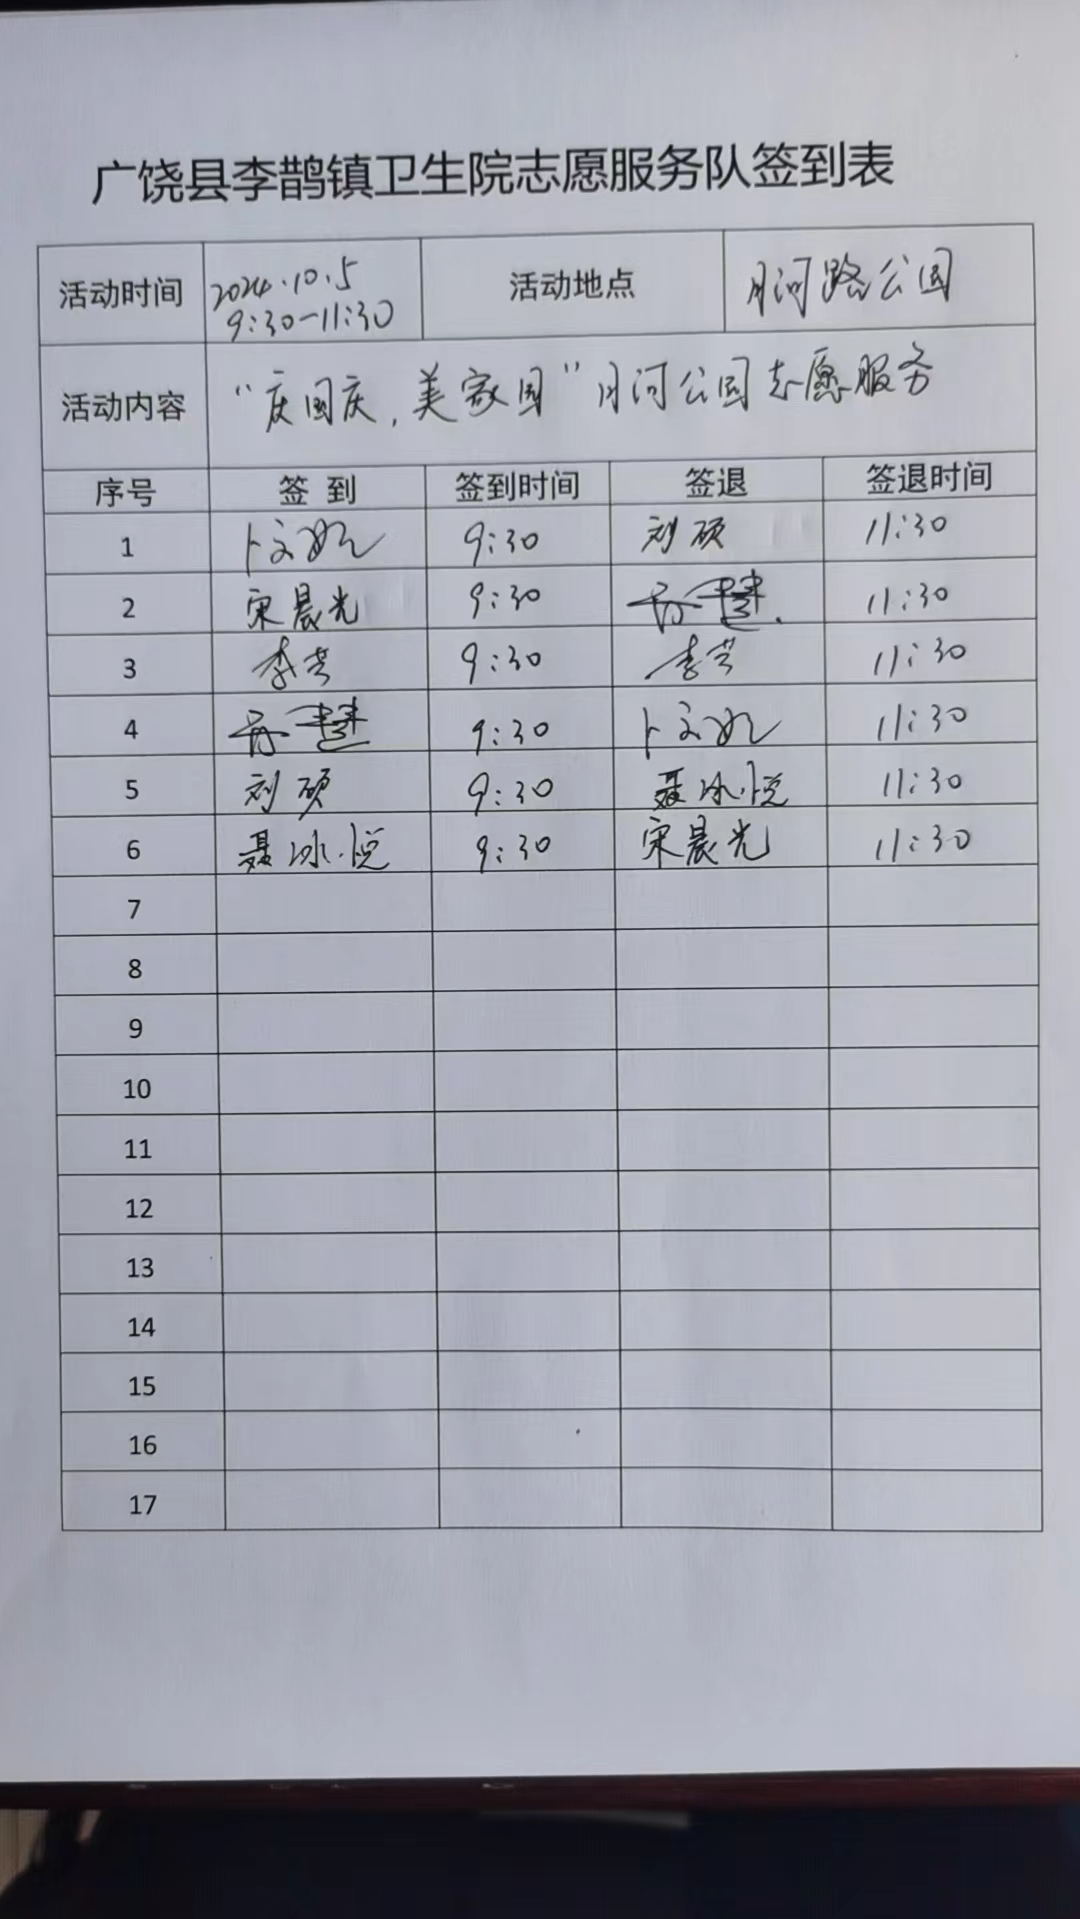 广饶县李鹊镇卫生院志愿服务队签到表
活动时间 2024.10.5 9:30-11:30 活动地点 月河路公园
活动内容 "庆国庆,美家园"月河公园志愿服务
序号 签到 签到时间 签退 签退时间
1 卜文 9:30 刘硕 11:30
2 宋晨光 9:30 孙 11:30
3 李芸 9:30 李芸 11:30
4 孙 9:30 卜文 11:30
5 刘硕 9:30 聂冰悦 11:30
6 聂冰悦 9:30 宋晨光 11:30
7
8
9
10
11
12
13
14
15
16
17